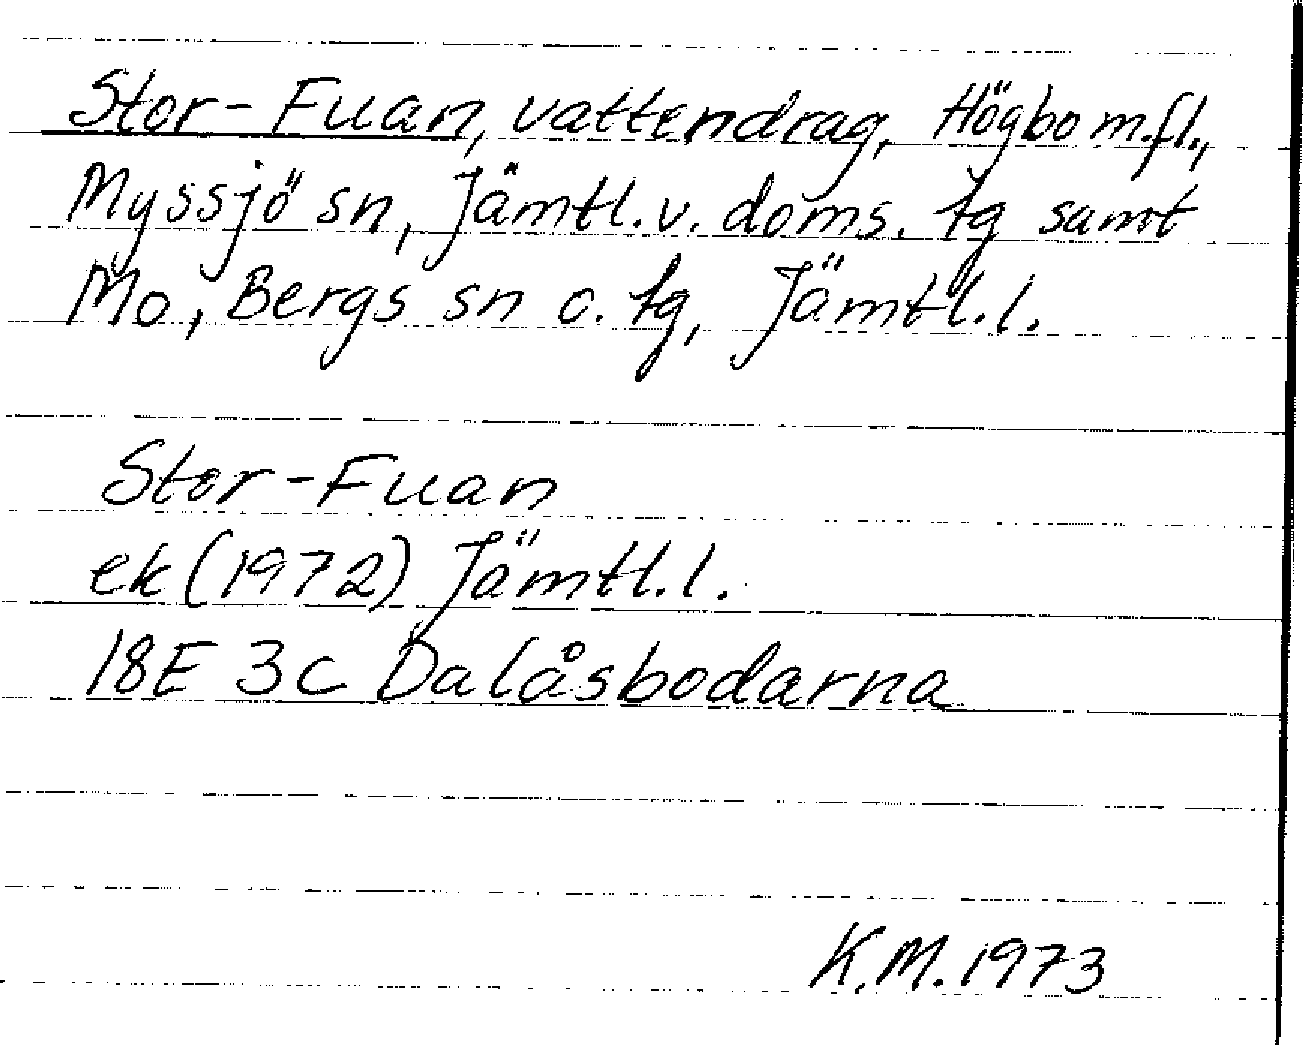 Stor-Fuan, vattendrag, Högbo m.fl.,
Myssjö sn, Jämtl. v. doms. tg samt
Mo, Bergs sn o. tg, Jämtl. l.
Stor-Fuan
ek (1972) Jämtl. l.
18E 3c Dalåsbodarna
K.M. 1973